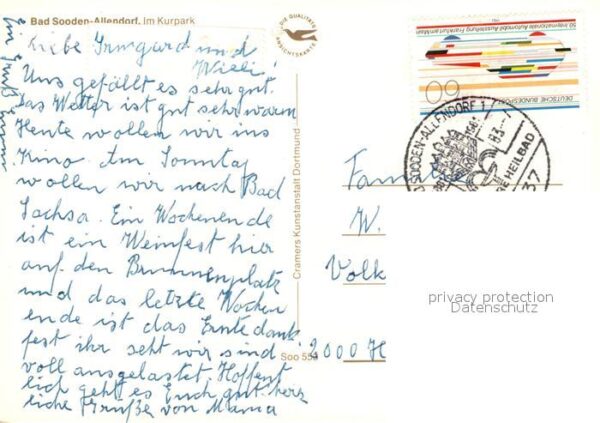 Bad Sooden-Allendorf, Im Kurpark
Liebe Irmgard und
Willi!
Uns gefällt es sehr gut.
Das Wetter ist gut sehr warm
Heute wollen wir ins
Kino Am Sonntag
wollen wir nach Bad
Sachsa. Ein Wochenende
ist ein Weinfest hier
auf den Brunnenplatz
und das letzte Wochen
ende ist das Erntedank
fest ihr seht wir sind
voll ausgelastet Hoffent
lich geht es Euch gut. herz
liche Grüße von Mama
DIE QUALITÄTS
ANSICHTSKARTE
Cramers Kunstanstalt Dortmund
Soo 55
50 Internationale Automobil-Ausstellung Frankfurt am Main
DEUTSCHE BUNDESPOST
60
SOODEN-ALLENDORF 1
HEILBAD
37
Fam
W.
Volk
3000 H
privacy protection
Datenschutz